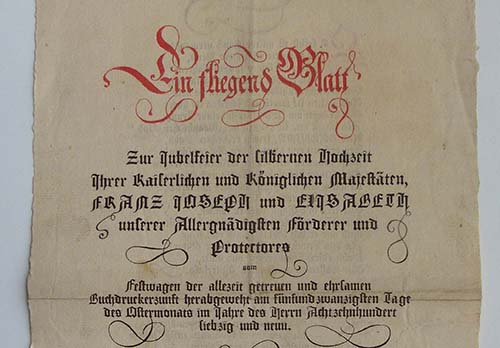 Ein fliegend Blatt
Zur Jubelfeier der silbernen Hochzeit
Ihrer Kaiserlichen und Königlichen Majestäten,
FRANZ JOSEPH und ELISABETH
unserer Allergnädigsten Förderer und
Protectores
vom
Festwagen der allezeit getreuen und ehrsamen
Buchdruckerzunft herabgeweht am fünfundzwanzigsten Tage
des Ostermonats im Jahre des Herrn Achtzehnhundert
siebzig und neun.